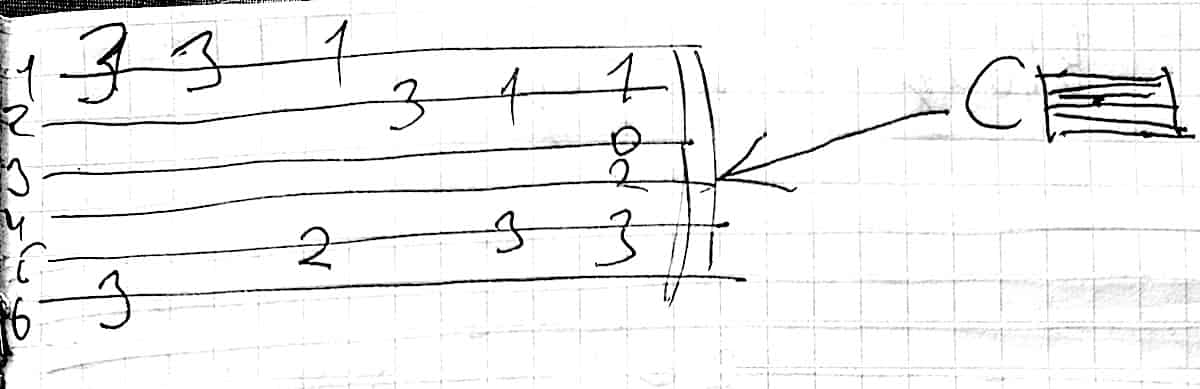 1 3 3 1
2 3 1 1
3 0
4 2
5 2 3 3
6 3
C